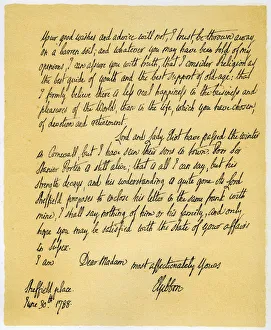 Your good wishes and advice will not, I trust, be thrown away
on a barren soil; and whatever you may have been told of my
opinions, I can assure you with truth, that I consider religion as
the best guide of youth and the best support of old age: that
I firmly believe there is less real happiness in the business and
pleasures of the World than in the life, which you have chosen,
of devotion and retirement.
Lord and Lady Eliot have passed the winter
in Cornwall, but I have seen their sons in town. Poor Sir
Stanier Porten is still alive, that is all I can say, but his
strength decays and his understanding is quite gone. As Lord
Sheffield proposes to enclose his letter in the same frank with
mine, I shall say nothing of him or his family, and only
hope you may be satisfied with the state of your affairs
in
I am Dear Madam most affectionately Yours
EGibbon
Sheffield place
June 30th 1788